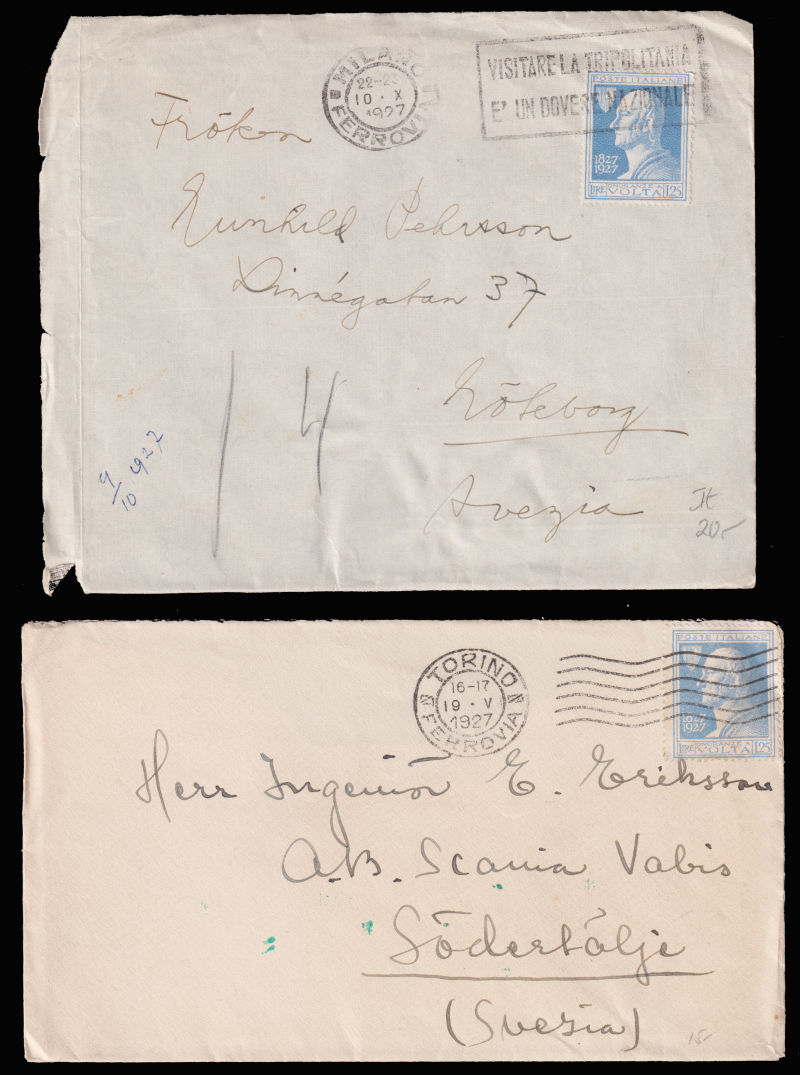 MILANO
22-23
10 · X
1927
FERROVIA
VISITARE LA TRIPOLITANIA
E' UN DOVERE NAZIONALE
POSTE ITALIANE
1827
1927
ONORANZE A
LIRE VOLTA 1,25
Fröken
Gunhild Pehrsson
Linnégatan 37
Göteborg
Svezia
14
9/10 1927
It
20,-
TORINO
16-17
19 · V
1927
FERROVIA
POSTE ITALIANE
1827
1927
ONORANZE A
LIRE VOLTA 1,25
Herr Ingeniör E. Eriksson
A.B. Scania Vabis
Södertälje
(Svezia)
15,-